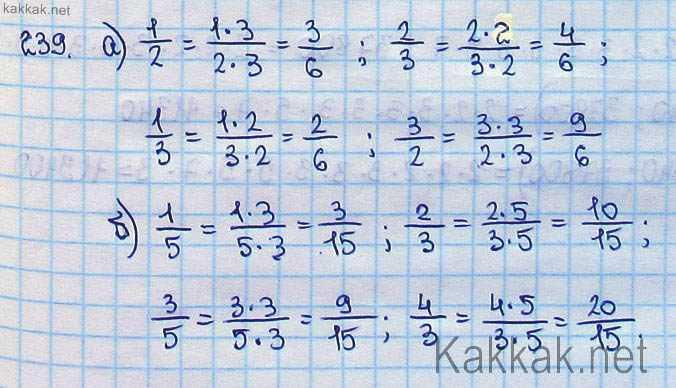 kakkak.net
239. а) 1/2 = 1·3/2·3 = 3/6 ; 2/3 = 2·2/3·2 = 4/6 ;
1/3 = 1·2/3·2 = 2/6 ; 3/2 = 3·3/2·3 = 9/6
б) 1/5 = 1·3/5·3 = 3/15 ; 2/3 = 2·5/3·5 = 10/15 ;
3/5 = 3·3/5·3 = 9/15 ; 4/3 = 4·5/3·5 = 20/15 ;
Kakkak.net